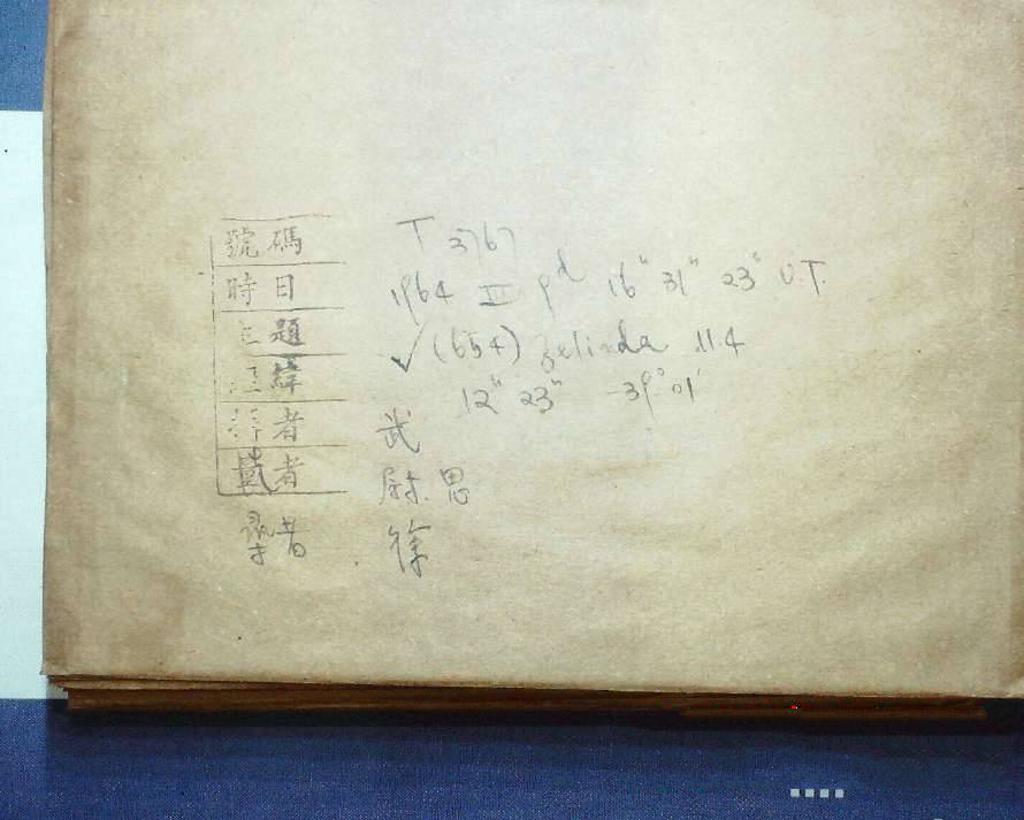 號碼 T 3767
時日 1964 III 9d 16h 31m 23s U.T.
題 ✓ (654) Zelinda 11.4
緯 12h 23m -39° 01'
者 武
者 思
者 徐